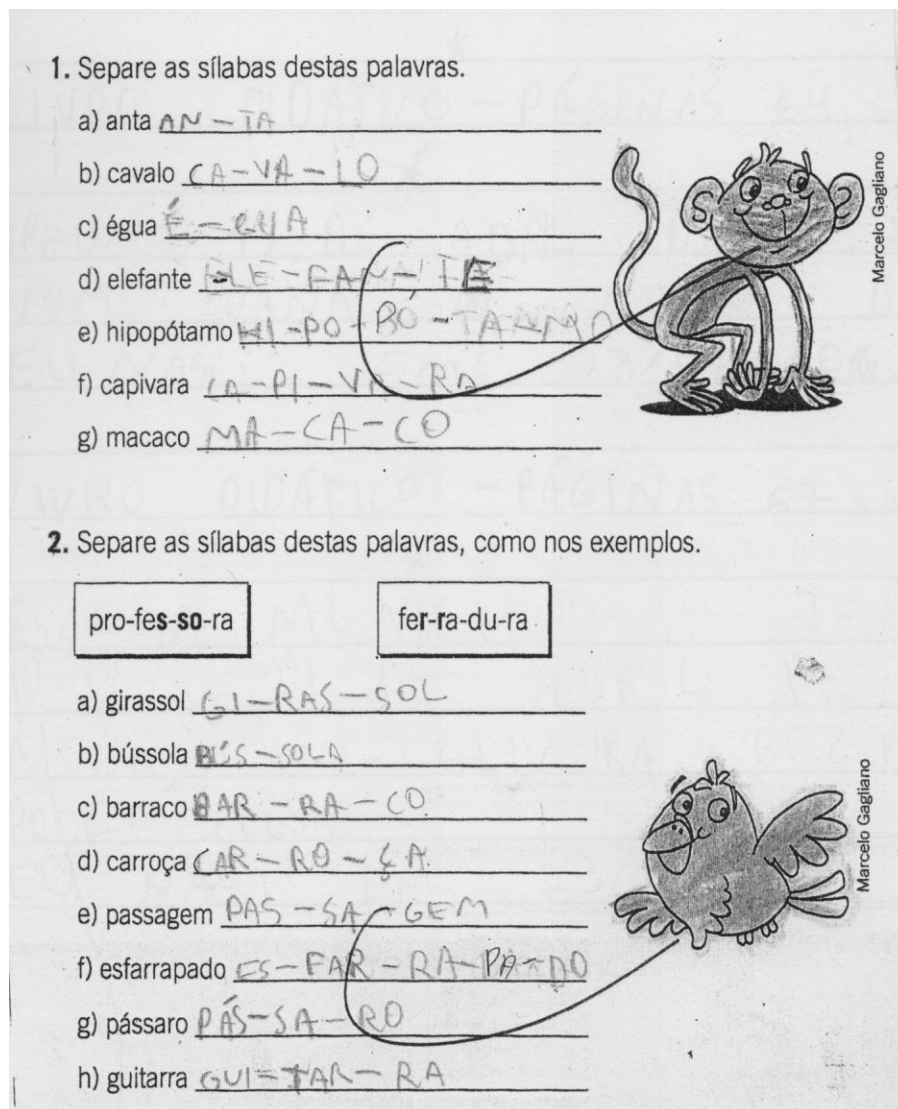 1. Separe as sílabas destas palavras.
a) anta AN - TA
b) cavalo CA - VA - LO
c) égua É - GUA
d) elefante ELE - FAN - TE
e) hipopótamo HI - PO - BO - TANMO
f) capivara CA - PI - VA - RA
g) macaco MA - CA - CO
Marcelo Gagliano
2. Separe as sílabas destas palavras, como nos exemplos.
pro-fes-so-ra fer-ra-du-ra
a) girassol GI - RAS - SOL
b) bússola BÚS - SOLA
c) barraco BAR - RA - CO
d) carroça CAR - RO - ÇA
e) passagem PAS - SA - GEM
f) esfarrapado ES - FAR - RA - PA - DO
g) pássaro PÁS - SA - RO
h) guitarra GUI - TAR - RA
Marcelo Gagliano